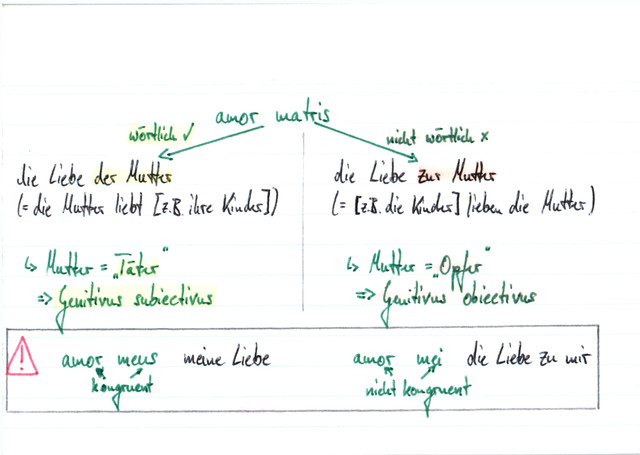 amor matris
wörtlich ✓
nicht wörtlich ×
die Liebe der Mutter
(= die Mutter liebt [z.B. ihre Kinder])
↳ Mutter = „Täter“
=> Genitivus subiectivus
die Liebe zur Mutter
(= [z.B. die Kinder] lieben die Mutter)
↳ Mutter = „Opfer“
=> Genitivus obiectivus
! amor meus meine Liebe
kongruent
amor mei die Liebe zu mir
nicht kongruent